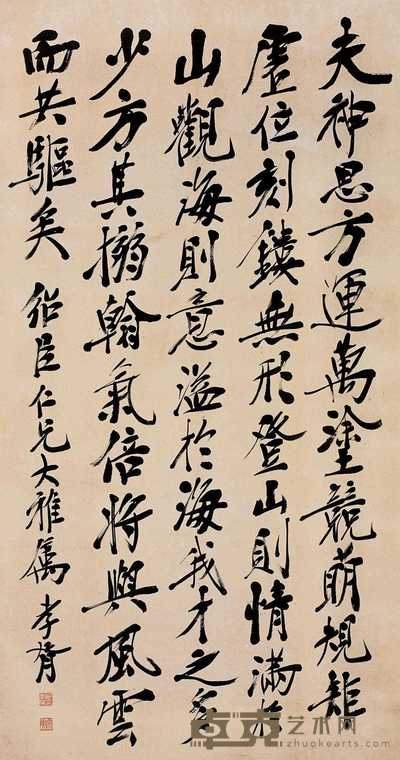 夫神思方運萬塗競萌規矩
虛位刻鏤無形登山則情滿於
山觀海則意溢於海我才之多
少方其搦翰氣倍將與風雲
而共驅矣 紹臣仁兄大雅屬 孝胥
卓克艺术网
zhuokearts.com